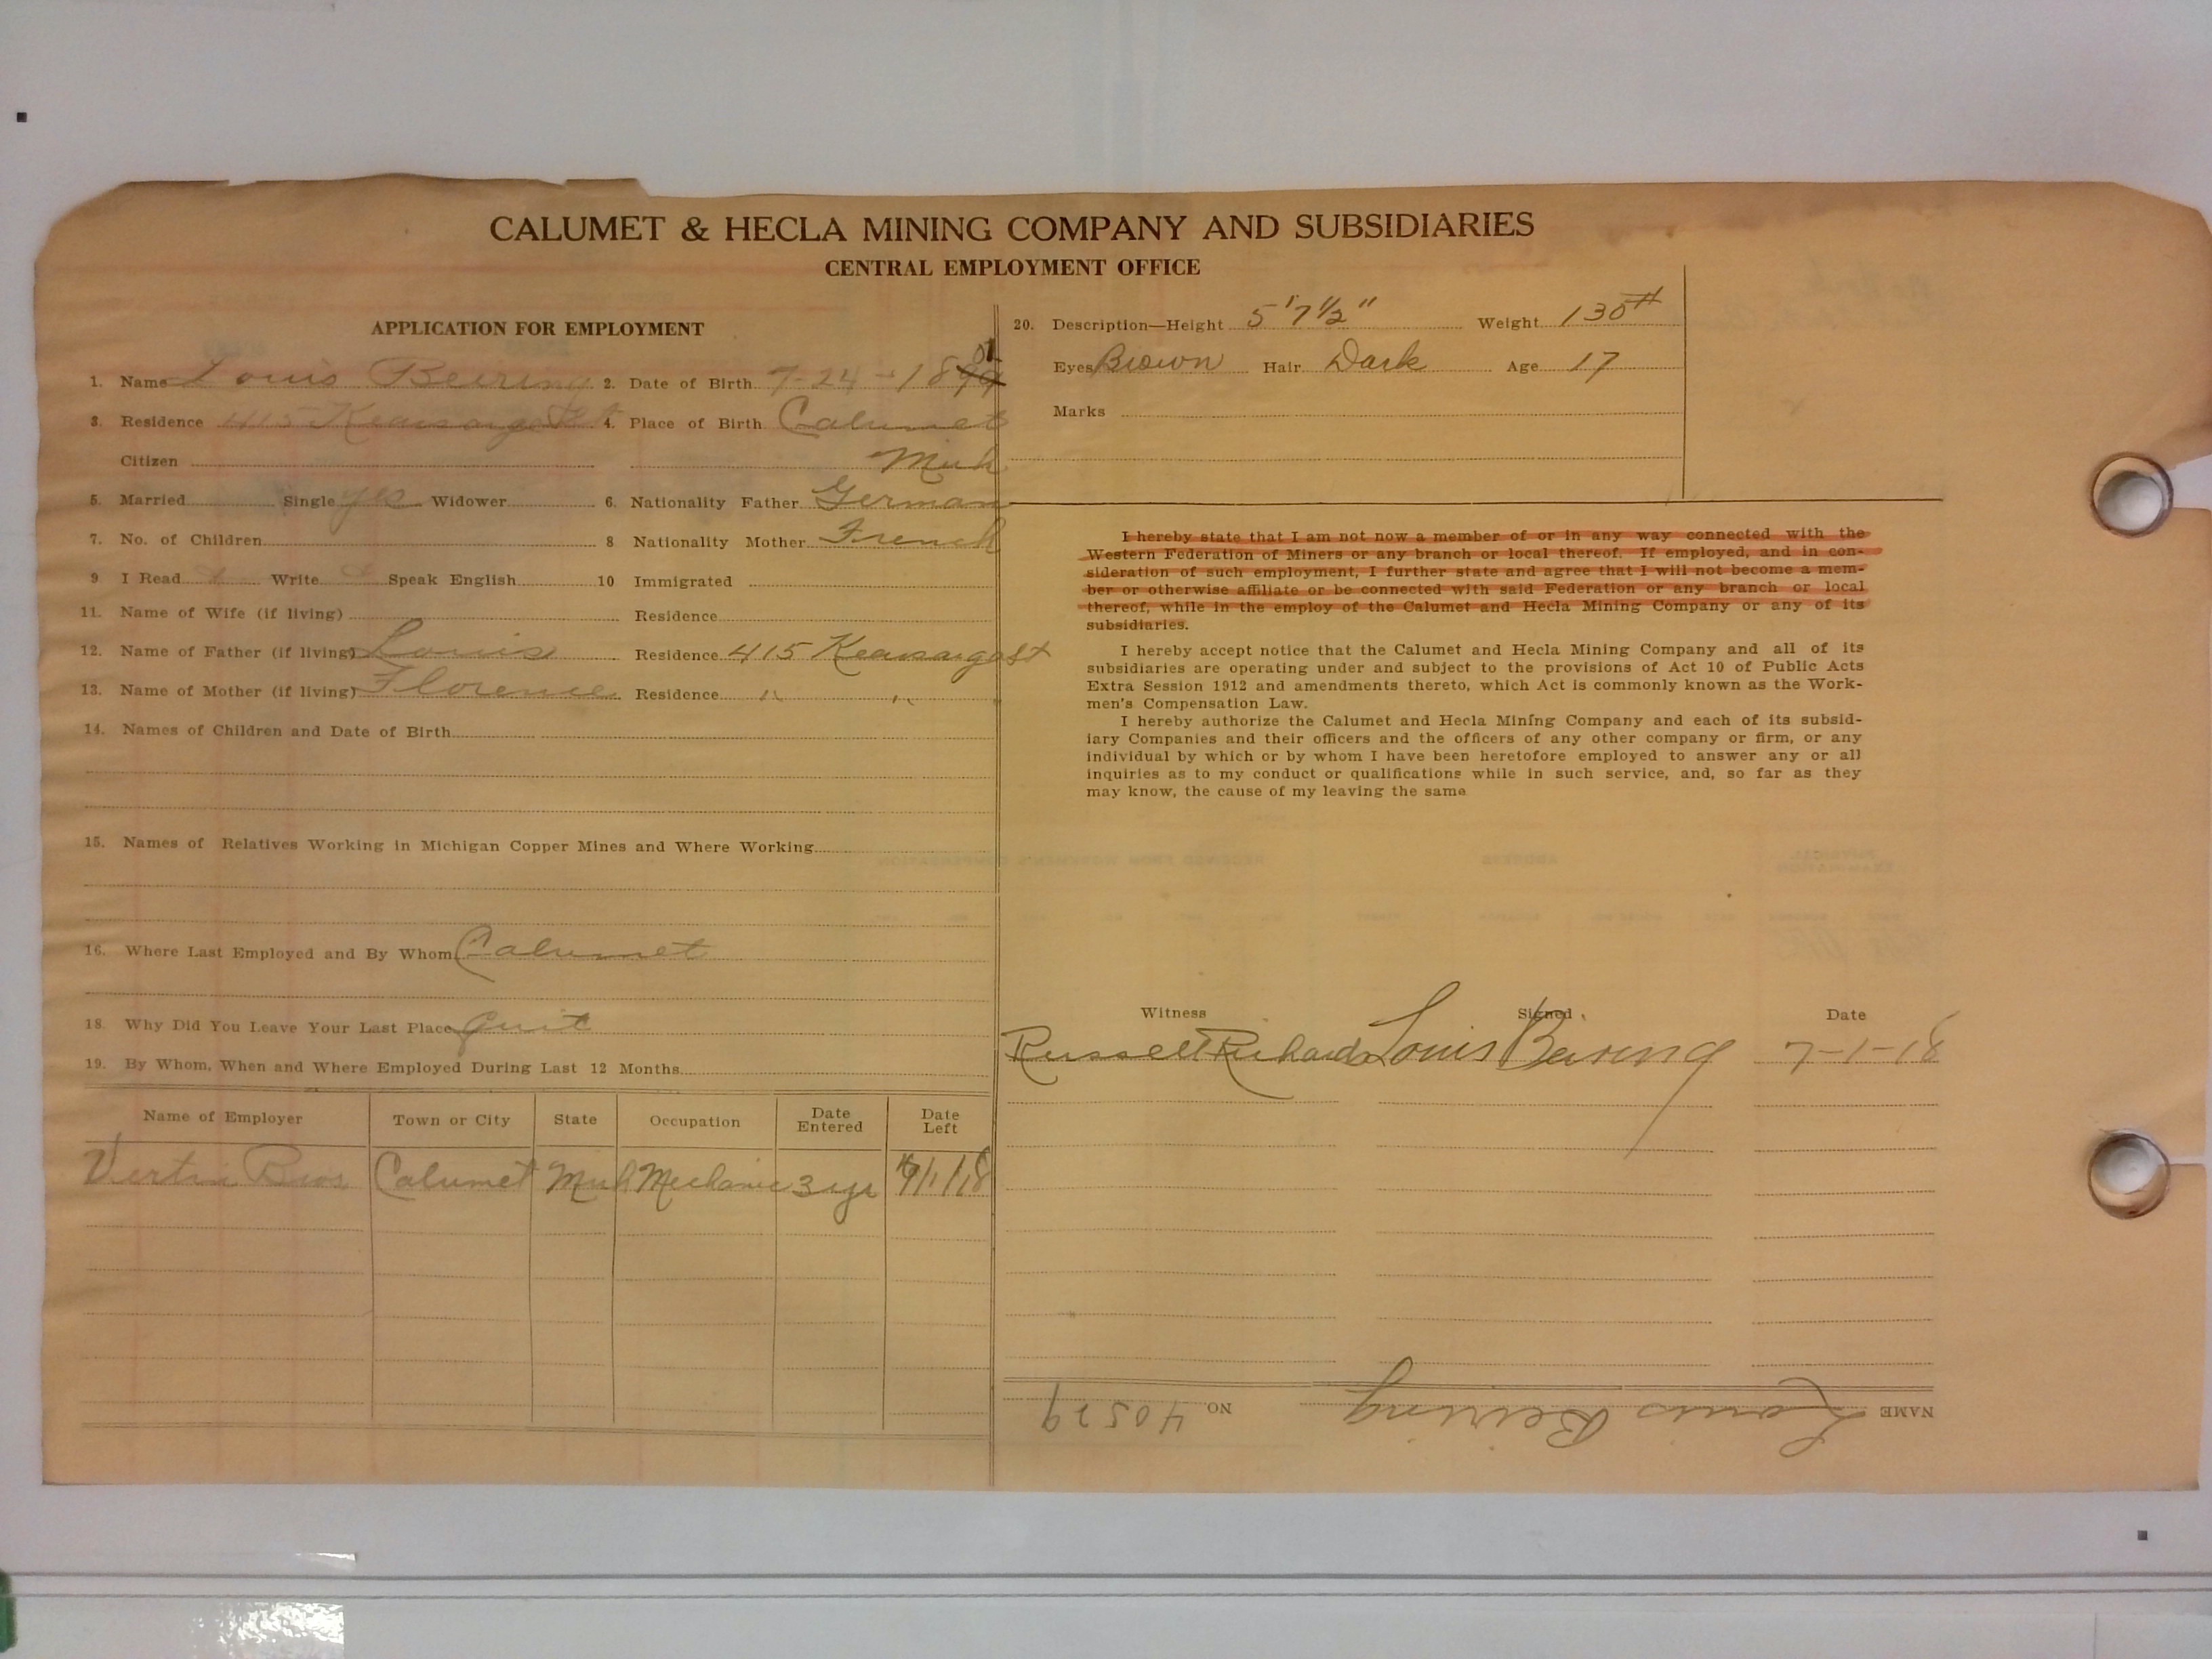 CALUMET & HECLA MINING COMPANY AND SUBSIDIARIES
CENTRAL EMPLOYMENT OFFICE
APPLICATION FOR EMPLOYMENT
1. Name Louis Beiring 2. Date of Birth 7-24-1899 01
3. Residence 415 Kearsarge St 4. Place of Birth Calumet
Citizen Mich
5. Married Single yes Widower 6. Nationality Father German
7. No. of Children 8 Nationality Mother French
9 I Read Write Speak English 10 Immigrated
11. Name of Wife (if living) Residence
12. Name of Father (if living) Louis Residence 415 Kearsarge St
13. Name of Mother (if living) Florence Residence " "
14. Names of Children and Date of Birth
15. Names of Relatives Working in Michigan Copper Mines and Where Working
16. Where Last Employed and By Whom Calumet
18. Why Did You Leave Your Last Place Quit
19. By Whom, When and Where Employed During Last 12 Months
Name of Employer Town or City State Occupation Date Entered Date Left
Vertin Bros Calumet Mich Mechanic 3 yr 7/1/18
20. Description—Height 5'7½" Weight 130#
Eyes Brown Hair Dark Age 17
Marks
I hereby state that I am not now a member of or in any way connected with the
Western Federation of Miners or any branch or local thereof. If employed, and in con-
sideration of such employment, I further state and agree that I will not become a mem-
ber or otherwise affiliate or be connected with said Federation or any branch or local
thereof, while in the employ of the Calumet and Hecla Mining Company or any of its
subsidiaries.
I hereby accept notice that the Calumet and Hecla Mining Company and all of its
subsidiaries are operating under and subject to the provisions of Act 10 of Public Acts
Extra Session 1912 and amendments thereto, which Act is commonly known as the Work-
men's Compensation Law.
I hereby authorize the Calumet and Hecla Mining Company and each of its subsid-
iary Companies and their officers and the officers of any other company or firm, or any
individual by which or by whom I have been heretofore employed to answer any or all
inquiries as to my conduct or qualifications while in such service, and, so far as they
may know, the cause of my leaving the same
Witness Signed Date
Russell Richards Louis Beiring 7-1-18
NAME Louis Beiring NO. 40529